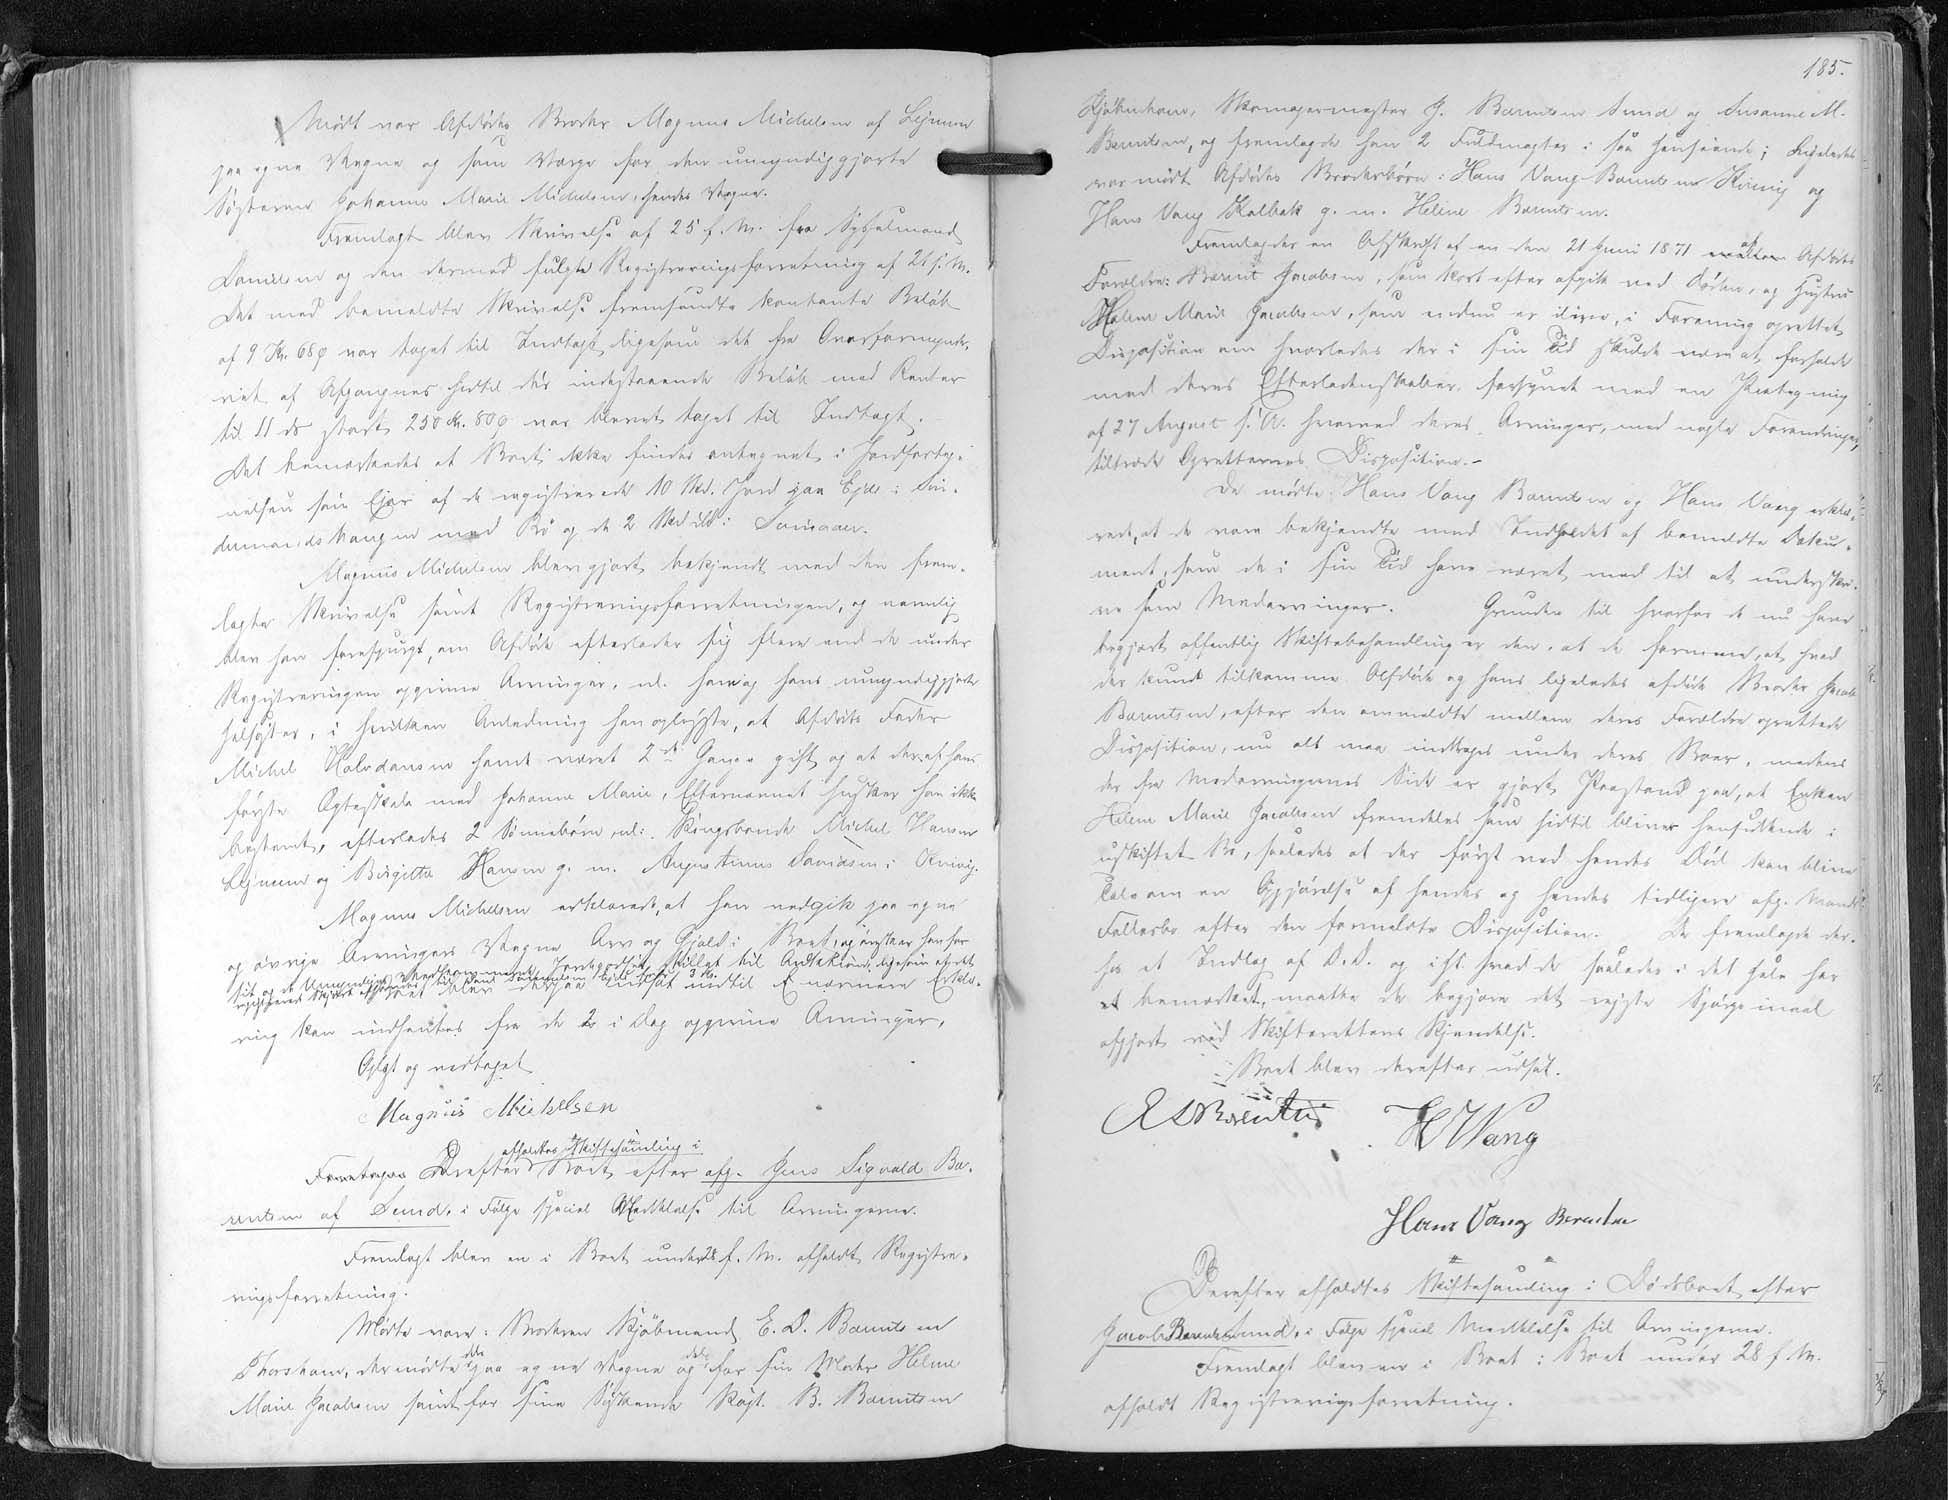 Mødt var Afdødes Broder Magnus Michelsen af Lejnum
paa egne Vegne og som Værge for den umyndiggjorte
Søsteren Johanne Marie Michelsen, hendes Vegne.
Fremlagt blev Skrivelse af 25 f. M. fra Sysselmand
Danielsen og den dermed fulgte Registreringsforretning af 21 s. M.
Det med bemeldte Skrivelse fremsendte kontante Beløb
af 9 Kr. 68 ø var taget til Indtægt ligesom det fra Overformynde-
riet af Afgangnes hidtil der indestaaende Beløb med Renter
til 11 ds stort 250 Kr. 80 ø var blevet taget til Indtægt.
Det bemærkedes at Boet ikke findes antegnet i Jordforteg-
nelsen som Ejer af de registrerede 10 Skd. Jord paa Ejde i Sui-
med Rø og de 2 Skd ibd:
Magnus Michelsen blev gjort bekjendt med den frem-
lagte Skrivelse samt Registreringsforretningen, og nemlig
blev han forespurgt, om Afdøde efterlader sig flere end de under
Registreringen opgivne Arvinger, nl. han og hans umyndiggjorte
Helsøster, i hvilken Anledning han oplyste, at Afdødes Fader
Michel Halvdansen havde været 2de Gange gift og at der af hans
første Ægteskab med Johanne Marie, Efternavnet husker han ikke
bestemt, efterlades 2 Sønnebørn, nl: Kongsbonde Michel Hansen
Lejnum og Birgitte Hansen g. m. Augustinus Davidsen i Kvivig.
Magnus Michelsen erklærede, at han vedgik paa egne
og øvrige Arvingers Vegne Arv og Gjæld i Boet, og ønsker han for
Sit og de Umyndiges Vedkommende Jordegodset stillet til Auktion, ligesom at det
registrerede
Boet blev derpaa udsat indtil nærmere Erklæ-
ring kan indhentes fra de 2 i Dag opgivne Arvinger.
Oplæst og vedtaget
Magnus Mickelsen
afholdtes Skiftesamling i
Foretoges Derefter Boet efter afg. Jens Sigvald Ba-
rentsen af Sund, i Følge speciel Meddelelse til Arvingerne.
Fremlagt blev en i Boet under 28 f. M. afholdt Registre-
ringsforretning.
Mødte vare: Broderen Kjøbmand E. S. Barentsen
Thorshavn, der mødte dels paa egne Vegne og dels for sin Moder Helene
Marie Jacobsen samt for sine Søskende Kapt. B. Barentsen
185.
Kjøbenhavn, Skomagermester J. Barentsen Sund og Susanne M.
Barentsen, og fremlagde han 2 Fuldmagter i saa Henseende; ligeledes
var mødt Afdødes Broderbørn: Hans Vang Barentsen Kvivig og
Hans Vang Kalbak g. m. Helene Barentsen.
Fremlagdes en Afskrift af en den 21 Juni 1871 af Afdødes
Forældre: Barent Jacobsen, som kort efter afgik ved Døden, og Hustru
Helene Marie Jacobsen, som endnu er ilive, i Forening oprettet
Disposition om hvorledes der i sin Tid skulde være at forholde
med deres Efterladenskaber, forsynet med en Paategning
af 27 August s. A. hvorved deres Arvinger, med nogle Forandringer,
tiltræde Opretternes Disposition.-
De mødte: Hans Vang Barentsen og Hans Vang erklæ-
rede, at de vare bekjendte med Indholdet af bemeldte Doku-
ment, som de i sin Tid have været med til at underskri-
ve som Medarvinger. Grunden til hvorfor de nu have
begjært offentlig Skiftebehandling er den, at de formene, at hvad
der kunde tilkomme Afdøde og hans ligeledes afdøde Broder Jacob
Barentsen, efter den ommeldte mellem deres Forældre oprettede
Disposition, nu alt maa inddrages under deres Boer, medens
der fra Medarvingernes Side er gjort Paastand paa, at Enken
Helene Marie Jacobsen fremdeles som hidtil bliver hensiddende i
uskiftet Bo, saaledes at der først ved hendes Død kan blive
Tale om en Opgjørelse af hendes og hendes tidligere afg. Mands
Fællesbo efter den formeldte Disposition. De fremlagde der-
for et Indlæg af D. D. og i hvad de saaledes i det hele har
bemærket, maatte de begjære det rejste Spørgsmaal
afgjort ved Skifterettens Kjendelse.
Boet blev derefter udsat.
E S Barentsen H Wang
Hans Vang Berentsen
Derefter afholdtes Skiftesamling i Dødsboet efter
Jacob Barentsen Sund, i Følge speciel Meddelelse til Arvingerne.
Fremlagt blev en i Boet i Boet under 28 f. M.
afholdt Registreringsforretning.